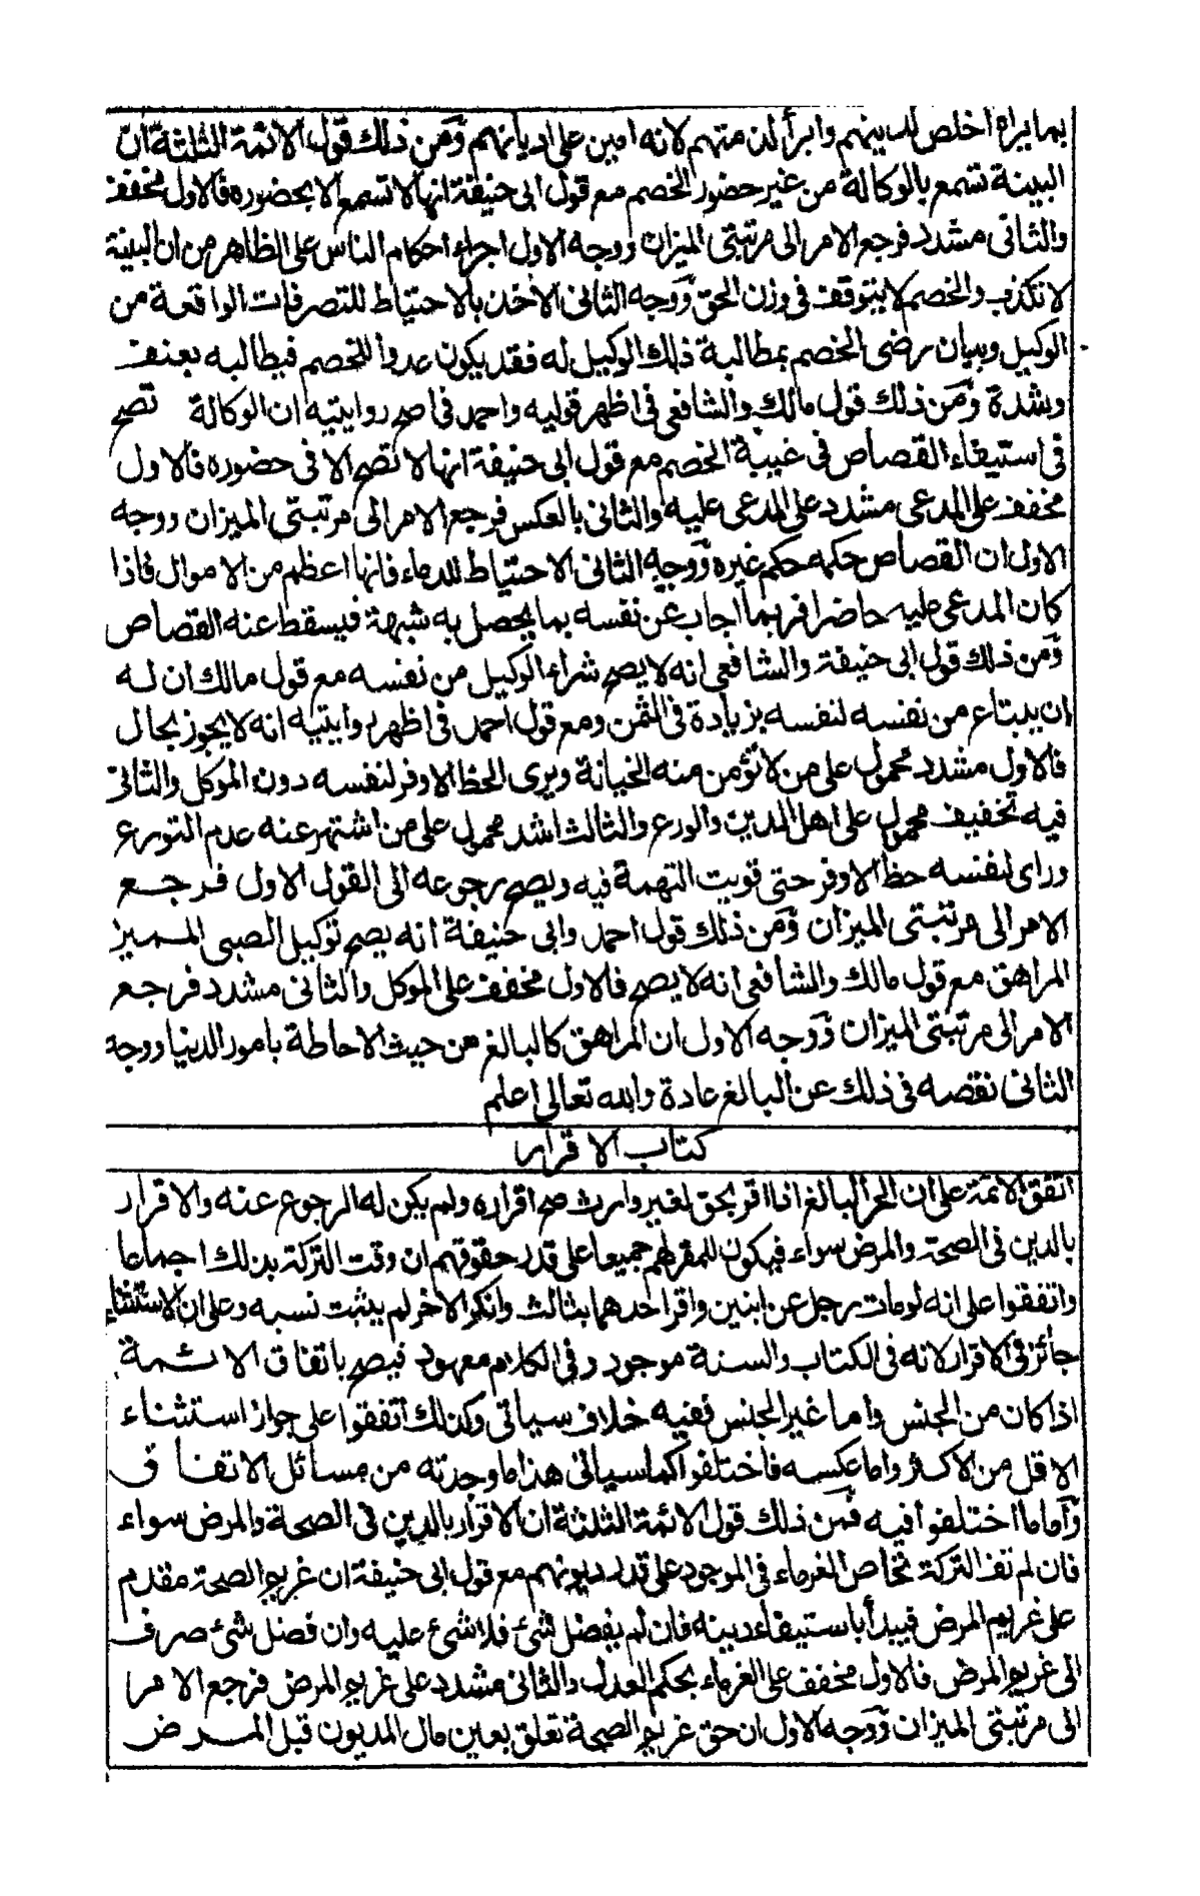 بما يراه اخلص لدينهم وابرأ لذمتهم لانه امين على اديانهم ومن ذلك قول الائمة الثلثة ان
البينة تسمع بالوكالة من غير حضور الخصم مع قول ابى حنيفة انها لا تسمع الا بحضوره فالاول مخفف
والثانى مشدد فرجع الامر الى مرتبتى الميزان ووجه الاول اجراء احكام الناس على الظاهر من ان البينة
لا تكذب والخصم لا يتوقف فى وزن الحق ووجه الثانى الاخذ بالاحتياط للتصرفات الواقعة من
الوكيل وبيان رضى الخصم بمطالبة ذلك الوكيل له فقد يكون عدوا للخصم فيطالبه بعنف
وشدة ومن ذلك قول مالك والشافعى فى اظهر قوليه واحمد فى اصح روايتيه ان الوكالة تصح
فى استيفاء القصاص فى غيبة الخصم مع قول ابى حنيفة انها لا تصح الا فى حضوره فالاول
مخفف على المدعى مشدد على المدعى عليه والثانى بالعكس فرجع الامر الى مرتبتى الميزان ووجه
الاول ان القصاص حكمه حكم غيره ووجه الثانى الاحتياط للدماء فانها اعظم من الاموال فاذا
كان المدعى عليه حاضرا فربما اجاب عن نفسه بما يحصل به شبهة فيسقط عنه القصاص
ومن ذلك قول ابى حنيفة والشافعى انه لا يصح شراء الوكيل من نفسه مع قول مالك ان له
ان يبتاع من نفسه لنفسه بزيادة فى الثمن ومع قول احمد فى اظهر روايتيه انه لا يجوز بحال
فالاول مشدد محمول على من لا تؤمن منه الخيانة ويرى الحظ الاوفر لنفسه دون الموكل والثانى
فيه تخفيف محمول على اهل الدين والورع والثالث اشد محمول على من اشتهر عنه عدم التورع
وراى لنفسه حظ الاوفر حتى قويت التهمة فيه ويصح رجوعه الى القول الاول فرجع
الامر الى مرتبتى الميزان ومن ذلك قول احمد وابى حنيفة انه يصح توكيل الصبى المميز
المراهق مع قول مالك والشافعى انه لا يصح فالاول مخفف على الموكل والثانى مشدد فرجع
الامر الى مرتبتى الميزان ووجه الاول ان المراهق كالبالغ من حيث الاحاطة بامور الدنيا ووجه
الثانى نقصه فى ذلك عن البالغ عادة والله تعالى اعلم
كتاب الاقرار
اتفق الائمة على ان الحر البالغ اذا اقر بحق لغير وارث صح اقراره ولم يكن له الرجوع عنه والاقرار
بالدين فى الصحة والمرض سواء فيكون للمقر لهم جميعا على قدر حقوقهم ان وفت التركة بذلك اجماعا
واتفقوا على انه لو مات رجل عن ابنين واقر احدهما بثالث وانكر الاخر لم يثبت نسبه وعلى ان الاستثناء
جائز فى الاقرار لانه فى الكتاب والسنة موجود وفى الكلام معهود فيصح باتفاق الائمة
اذا كان من الجنس واما غير الجنس ففيه خلاف سياتى وكذلك اتفقوا على جواز استثناء
الاقل من الاكثر واما عكسه فاختلفوا كما سياتى هذا ما وجدته من مسائل الاتفاق
واما ما اختلفوا فيه فمن ذلك قول الائمة الثلثة ان الاقرار بالدين فى الصحة والمرض سواء
فان لم تف التركة تحاص الغرماء فى الموجود على قدر ديونهم مع قول ابى حنيفة ان غريم الصحة مقدم
على غريم المرض فيبدأ باستيفاء دينه فان لم يفضل شئ فلا شئ عليه وان فضل شئ صرف
الى غريم المرض فالاول مخفف على الغرماء بحكم العدل والثانى مشدد على غريم المرض فرجع الامر
الى مرتبتى الميزان ووجه الاول ان حق غريم الصحة تعلق بعين مال المديون قبل المرض